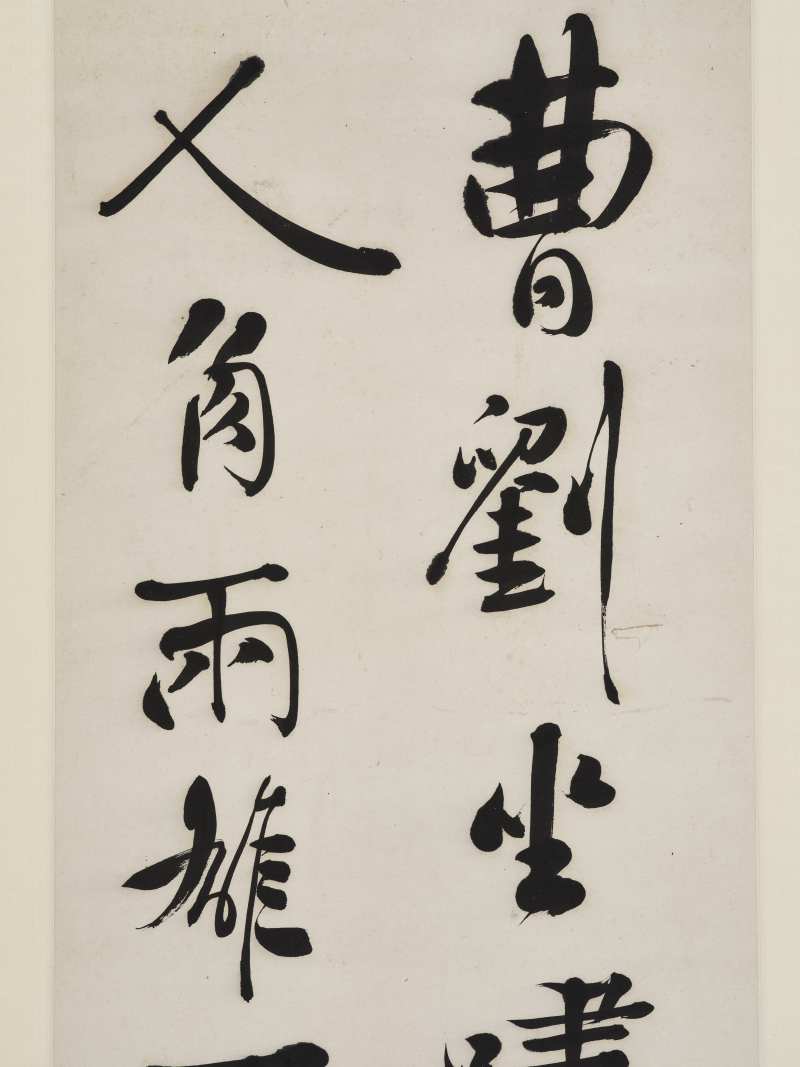 曹劉坐嘯
人角兩雄